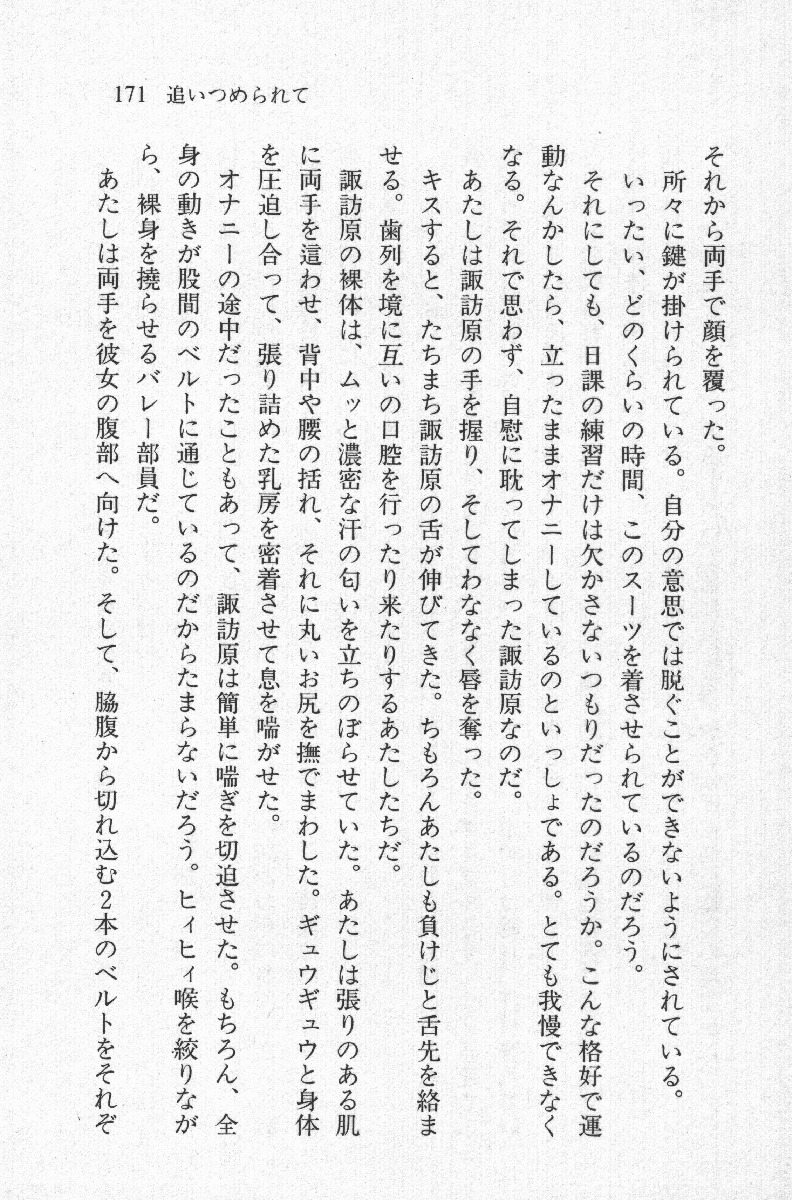 171 追いつめられて
それから両手で顔を覆った。
所々に鍵が掛けられている。自分の意思では脱ぐことができないようにされている。
いったい、どのくらいの時間、このスーツを着させられているのだろう。
それにしても、日課の練習だけは欠かさないつもりだったのだろうか。こんな格好で運
動なんかしたら、立ったままオナニーしているのといっしょである。とても我慢できなく
なる。それで思わず、自慰に耽ってしまった諏訪原なのだ。
あたしは諏訪原の手を握り、そしてわななく唇を奪った。
キスすると、たちまち諏訪原の舌が伸びてきた。ちもろんあたしも負けじと舌先を絡ま
せる。歯列を境に互いの口腔を行ったり来たりするあたしたちだ。
諏訪原の裸体は、ムッと濃密な汗の匂いを立ちのぼらせていた。あたしは張りのある肌
に両手を這わせ、背中や腰の括れ、それに丸いお尻を撫でまわした。ギュウギュウと身体
を圧迫し合って、張り詰めた乳房を密着させて息を喘がせた。
オナニーの途中だったこともあって、諏訪原は簡単に喘ぎを切迫させた。もちろん、全
身の動きが股間のベルトに通じているのだからたまらないだろう。ヒィヒィ喉を絞りなが
ら、裸身を撓らせるバレー部員だ。
あたしは両手を彼女の腹部へ向けた。そして、脇腹から切れ込む2本のベルトをそれぞ